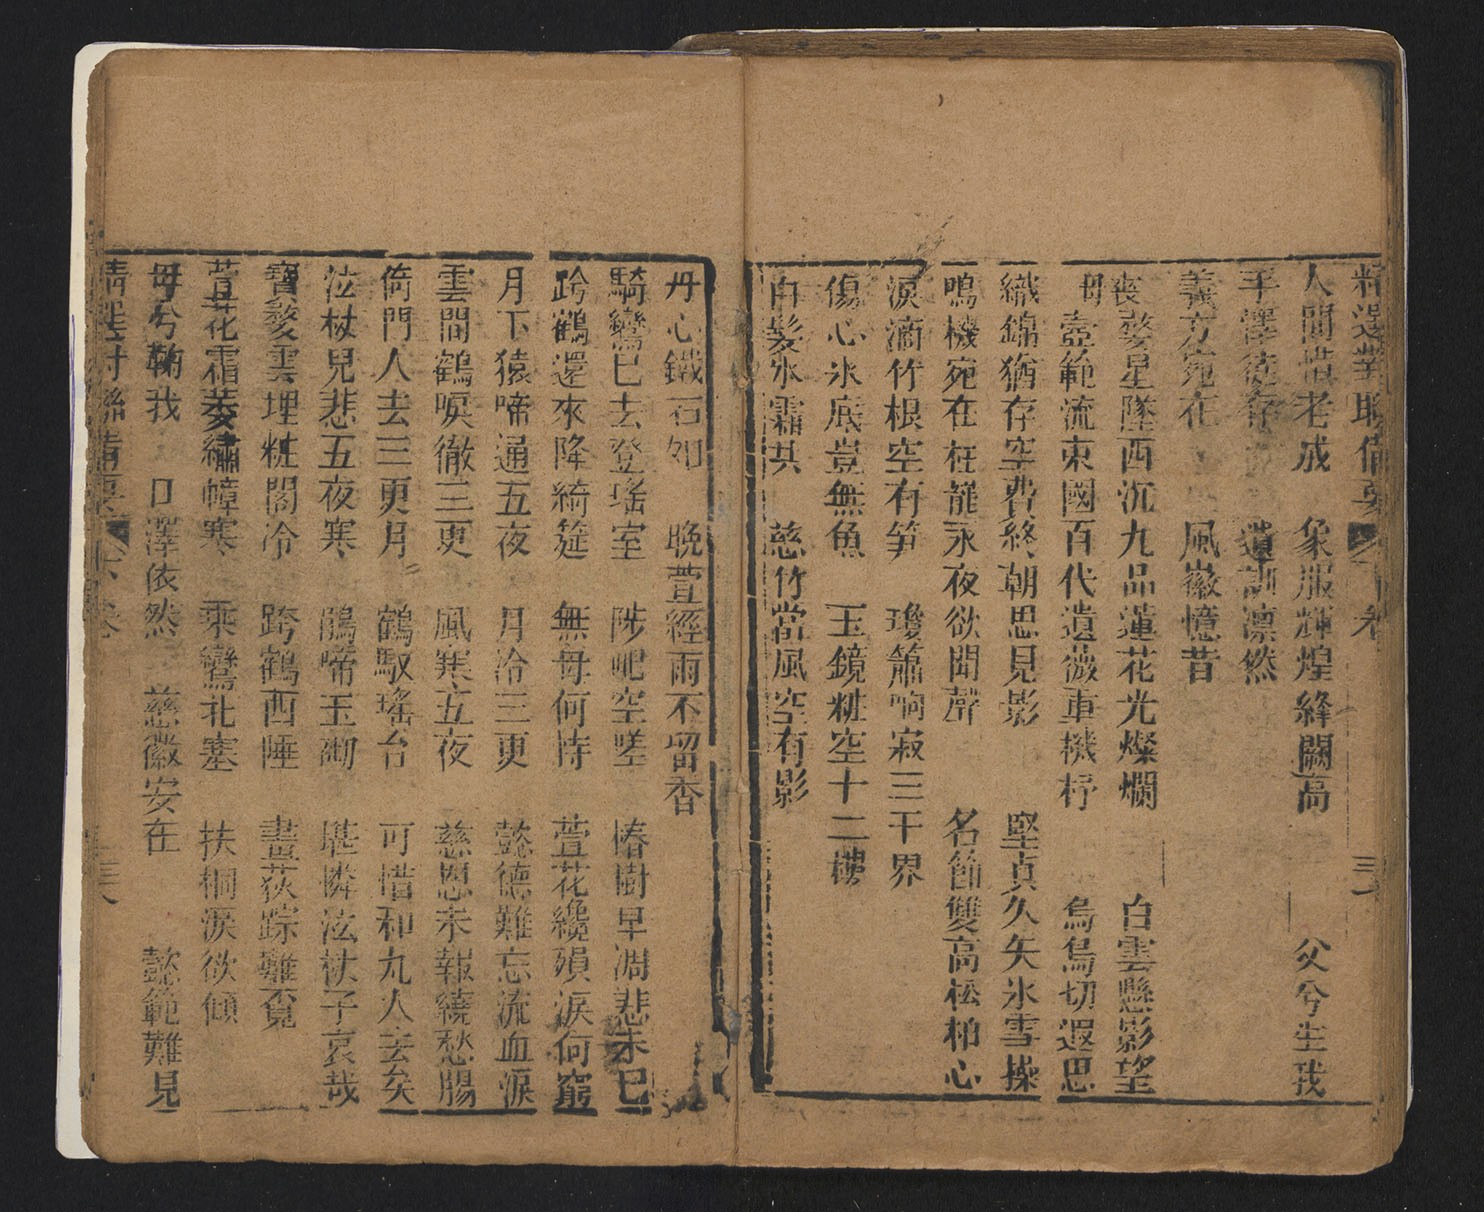 精選對聯備要 卷 三
人間惜老成 象服輝煌絳闕高 父兮生我
手澤徒存 遺訓凛然
義方宛在 風徽憶昔
喪 婺星墜西沉九品蓮花光燦爛 白雲懸影望
母 壼範流東國百代遺薇車機杼 烏烏切遐思
織錦猶存空費終朝思見影 堅貞久矢氷雪操
鳴機宛在枉罷永夜欲聞聲 名節雙高松柏心
淚滴竹根空有笋 瓊簫响寂三千界
傷心氷底豈無魚 玉鏡粧空十二樓
白髮氷霜其 慈竹當風空有影
丹心鐵石如 晚萱經雨不留香
騎鸞已去登瑤室 陟岵空嗟 椿樹早凋悲未已
跨鶴還來降綺筵 無母何恃 萱花纔殞淚何窮
月下猿啼通五夜 月冷三更 懿德難忘流血淚
雲間鶴唳徹三更 風寒五夜 慈恩未報繞愁腸
倚門人去三更月 鶴馭瑤台 可惜和丸人去矣
泣杖兒悲五夜寒 鵑啼玉砌 堪憐泣杖子哀哉
寶婺雲埋粧閣冷 跨鶴西陲 畫荻踪難覓
萱花霜萎繡幛寒 乘鸞北塞 扶桐淚欲傾
母兮鞠我 口澤依然 慈徽安在 懿範難見
精選對聯備要 六卷 三八